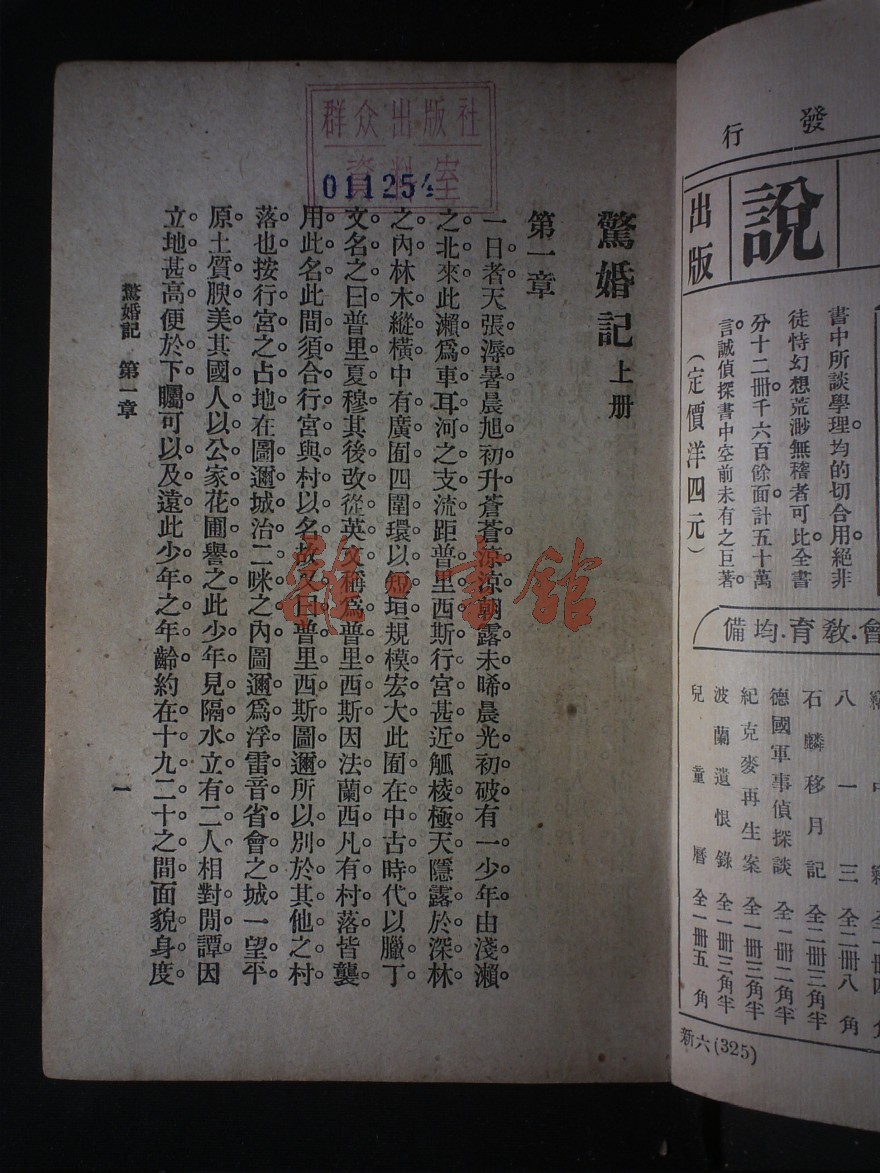 發行
說
出版
書中所談學理均的切合用絕非
徒恃幻想荒渺無稽者可比全書
分十二冊千六百餘面計五十萬
言誠偵探書中空前未有之巨著
(定價洋四元)
會.教育.均備
八一三 全二冊八角
石麟移月記 全二冊三角半
德國軍事偵探談 全一冊二角半
紀克麥再生案 全一冊三角半
波蘭遺恨錄 全一冊三角半
兒童曆 全一冊五角
新六(325)
群众出版社
資料室
011254
驚婚記 上册
第一章
一日者天張溽暑晨旭初升蒼蒼涼涼朝露未晞晨光初破有一少年由淺瀨
之北來此瀨爲車耳河之支流距普里西斯行宮甚近觚棱極天隱露於深林
之內林木縱橫中有廣囿四圍環以短垣規模宏大此囿在中古時代以臘丁
文名之曰普里夏穆其後改從英文稱爲普里西斯因法蘭西凡有村落皆襲
用此名此間須合行宮與村以名故又曰普里西斯圖邇所以別於其他之村
落也按行宮之占地在圖邇城治二咪之內圖邇爲浮雷音省會之城一望平
原土質腴美其國人以公家花圃譽之此少年見隔水立有二人相對閒譚因
立地甚高便於下矚可以及遠此少年之年齡約在十九二十之間面貌身度
驚婚記 第一章
一
雜·書館